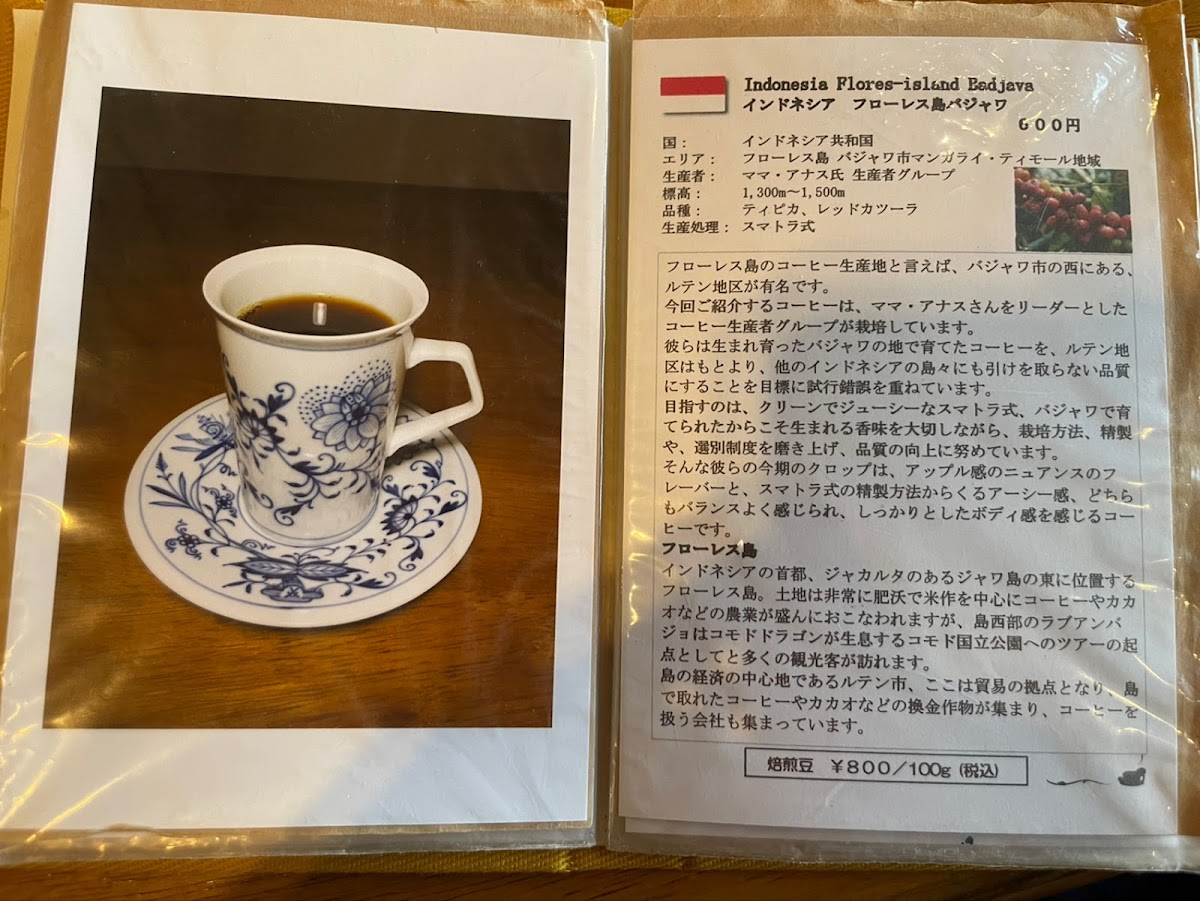 Indonesia Flores-island Badjava
インドネシア　フローレス島バジャワ
600円
国：　インドネシア共和国
エリア：　フローレス島 バジャワ市マンガライ・ティモール地域
生産者：　ママ・アナス氏 生産者グループ
標高：　1,300m～1,500m
品種：　ティピカ、レッドカツーラ
生産処理：　スマトラ式
フローレス島のコーヒー生産地と言えば、バジャワ市の西にある、
ルテン地区が有名です。
今回ご紹介するコーヒーは、ママ・アナスさんをリーダーとした
コーヒー生産者グループが栽培しています。
彼らは生まれ育ったバジャワの地で育てたコーヒーを、ルテン地
区はもとより、他のインドネシアの島々にも引けを取らない品質
にすることを目標に試行錯誤を重ねています。
目指すのは、クリーンでジューシーなスマトラ式、バジャワで育
てられたからこそ生まれる香味を大切しながら、栽培方法、精製
や、選別制度を磨き上げ、品質の向上に努めています。
そんな彼らの今期のクロップは、アップル感のニュアンスのフ
レーバーと、スマトラ式の精製方法からくるアーシー感、どちら
もバランスよく感じられ、しっかりとしたボディ感を感じるコー
ヒーです。
フローレス島
インドネシアの首都、ジャカルタのあるジャワ島の東に位置する
フローレス島。土地は非常に肥沃で米作を中心にコーヒーやカカ
オなどの農業が盛んにおこなわれますが、島西部のラブアンバ
ジョはコモドドラゴンが生息するコモド国立公園へのツアーの起
点としてと多くの観光客が訪れます。
島の経済の中心地であるルテン市、ここは貿易の拠点となり、島
で取れたコーヒーやカカオなどの換金作物が集まり、コーヒーを
扱う会社も集まっています。
焙煎豆　￥800／100g（税込）